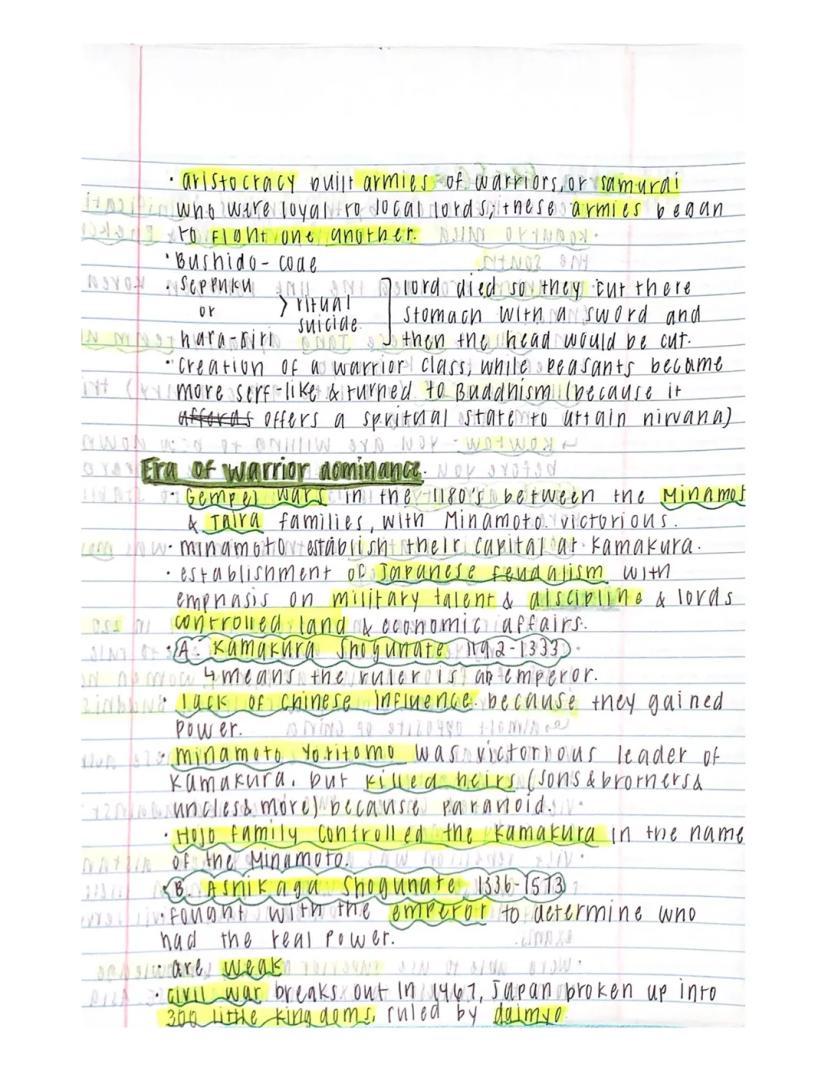 · aristocracy built armies of warriors, or samurai
who were loyal to local lords; these armies began
to fight one another.
· Bushido - code
· Seppuku
or
hara-kiri
> ritual
suicide
lord died so they cut there
stomach with a sword and
then the head would be cut.
· creation of a warrior class, while peasants became
more serf-like & turned to Buddhism (because it
affords offers a spritual state to attain nirvana)
Era of warrior dominance.
· Gempei Wars in the 1180's between the Minamot
& Taira families, with Minamoto victorious.
· minamoto establish their capital at Kamakura.
· establishment of Japanese feudalism with
emphasis on military talent & discipline & lords
controlled land & economic affairs.
· A. Kamakura Shogunate 1192-1333
↳ means the ruler is an emperor.
· lack of chinese influence because they gained
power.
· minamoto Yoritomo was victorious leader of
Kamakura, but killed heirs (sons & brothers &
uncles & more) because paranoid.
· Hojo family controlled the Kamakura in the name
of the Minamoto.
· B. Ashikaga Shogunate 1336-1573
· fought with the emperor to determine who
had the real power.
· are weak
· civil war breaks out in 1467, Japan broken up into
300 little kingdoms, ruled by daimyo